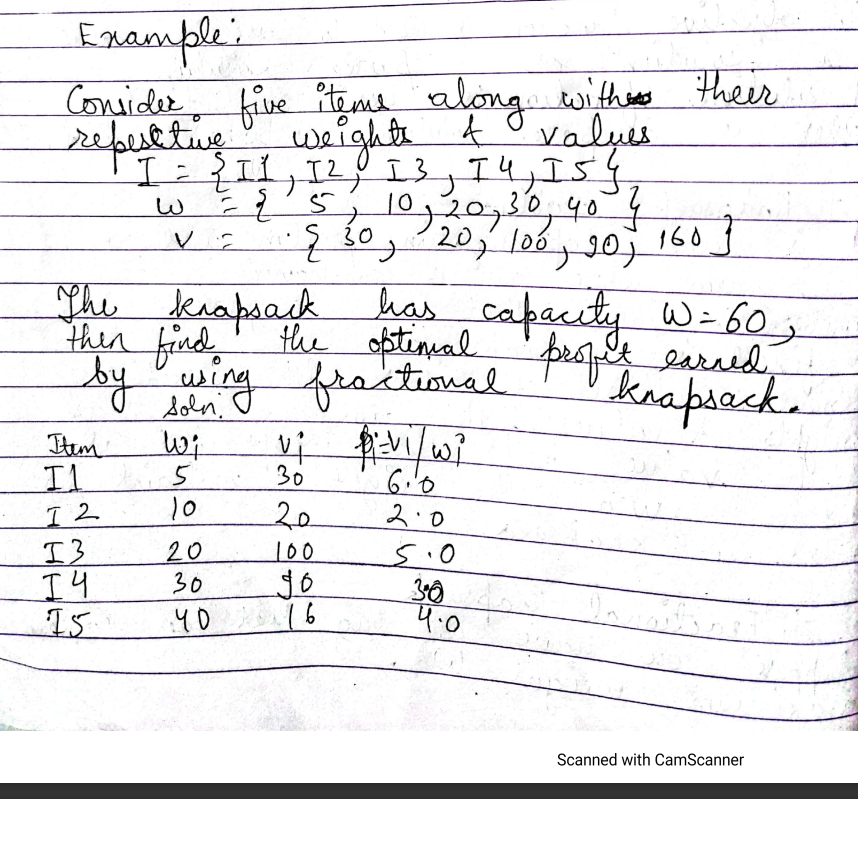 Example:
Consider five items along with their
repesctive weights & values
I = {I1, I2, I3, I4, I5}
w = { 5, 10, 20, 30, 40 }
v = { 30, 20, 100, 90, 160 }
The knapsack has capacity W=60,
then find the optimal profit earned
by using fractional knapsack.
soln.
Item wi vi pi=vi/wi
I1 5 30 6.0
I2 10 20 2.0
I3 20 100 5.0
I4 30 90 3.0
I5 40 16 4.0
Scanned with CamScanner